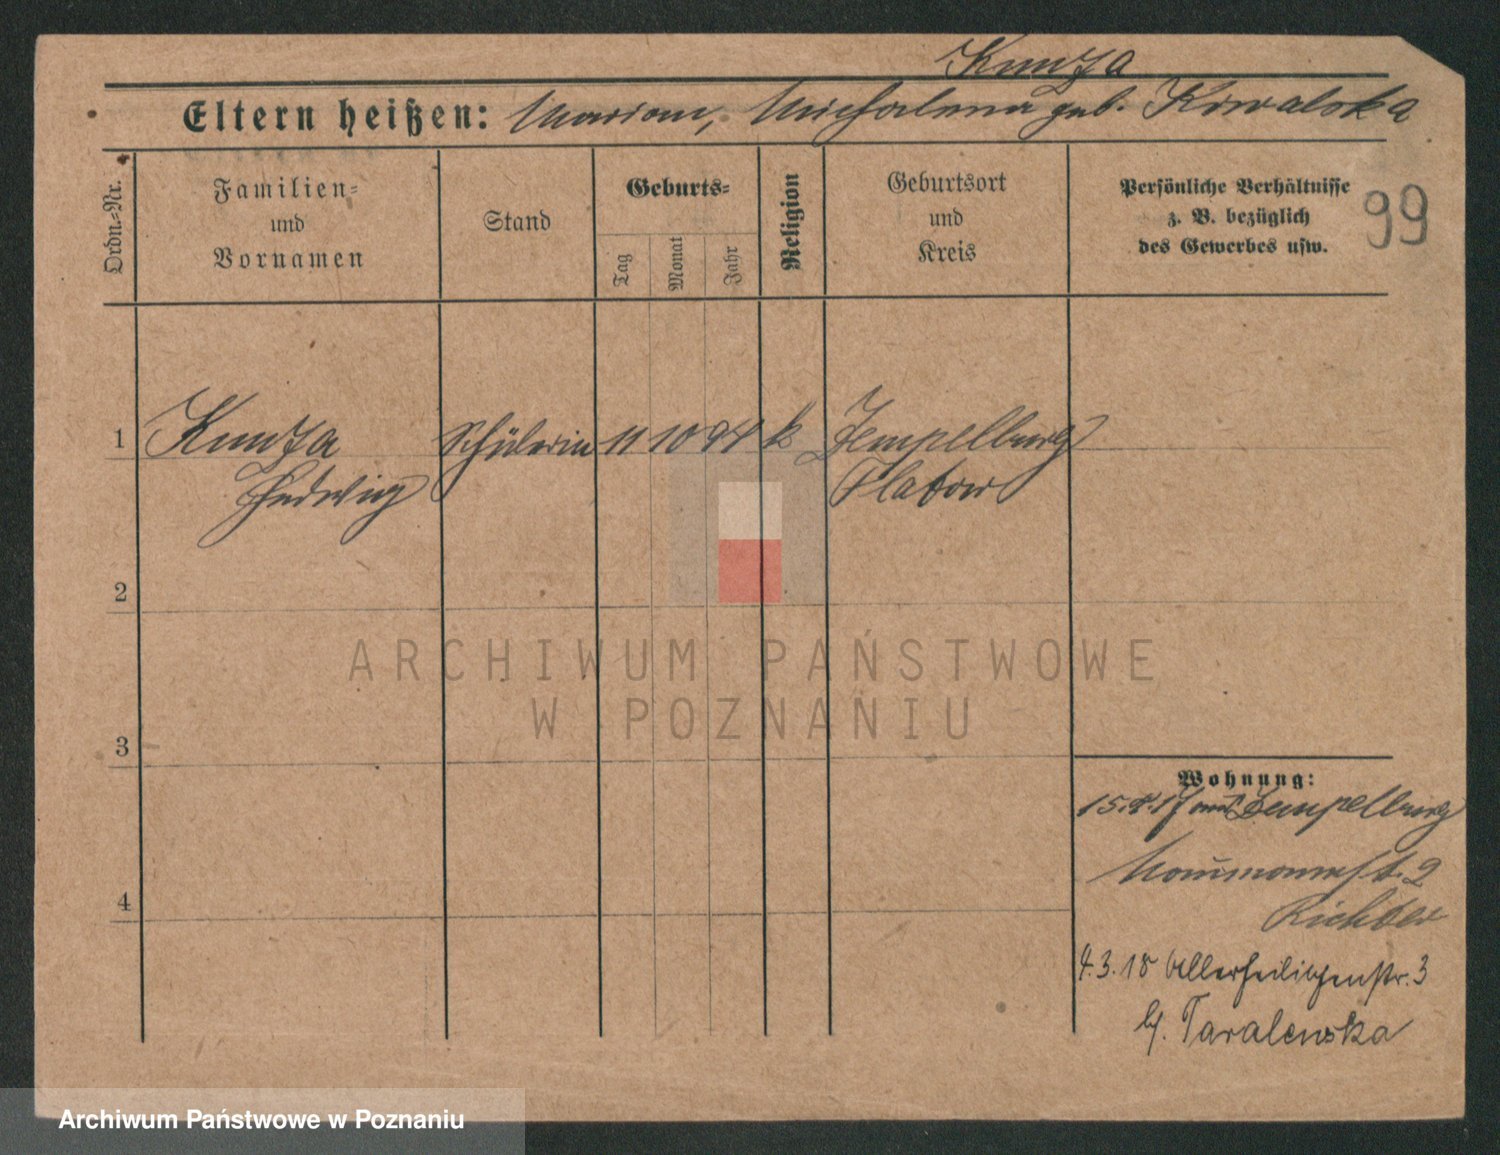 Kunza
Eltern heißen: Marian, Michalina geb. Kowalska
Ordn.-Nr.
Familien-
und
Vornamen
Stand
Geburts-
Tag
Monat
Jahr
Religion
Geburtsort
und
Kreis
Persönliche Verhältnisse
z. B. bezüglich
des Gewerbes usw.
99
1 Kunza Schülerin 11 10 94 k Zempelburg
Hedwig Flatow
2
3
4
Wohnung:
15.4.17 aus Zempelburg
Naumannst. 2
Richter
4.3.18 Allerheiligenstr. 3
b/. Taralewska
ARCHIWUM PAŃSTWOWE
W POZNANIU
Archiwum Państwowe w Poznaniu